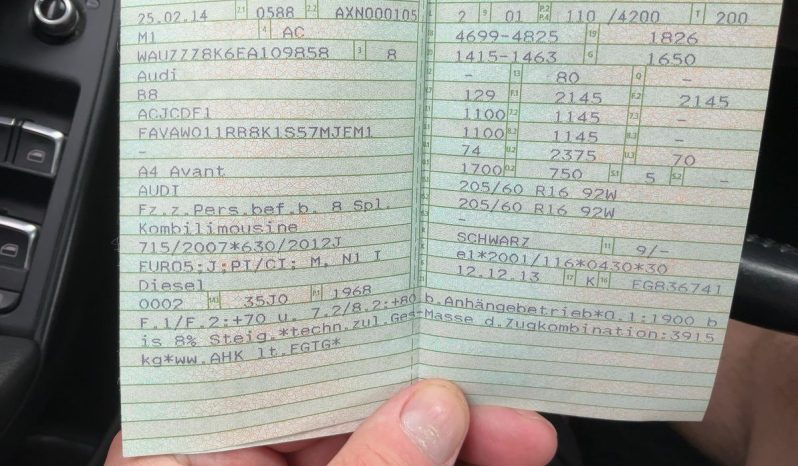 25.02.14 2.1 0588 2.2 AXN000105
M1 4 AC
WAU7778K6EA109858 3 8
Audi
B8
ACJCDF1
FAVAW011RB8K1S57MJEM1
-
A4 Avant
AUDI
Fz.z.Pers.bef.b. 8 Spl.
Kombilimousine
715/2007*630/2012J
EURO5;J;PI/CI; M, N1 I
Diesel
0002 35J0 1968
2 9 01 P.2 P.4 110 /4200 T 200
4699-4825 19 1826
1415-1463 G 1650
- 13 80 Q -
129 F.1 2145 F.2 2145
1100 7.2 1145 7.3 -
1100 8.2 1145 8.3 -
74 U.2 2375 U.3 70
1700 O.2 750 S.1 5 S.2 -
205/60 R16 92W
205/60 R16 92W
-
SCHWARZ 11 9/-
e1*2001/116*0430*30
12.12.13 17 K 16 FG836741
F.1/F.2:+70 u. 7.2/8.2:+80 b.Anhängebetrieb*O.1:1900 b
is 8% Steig.*techn.zul.Ges-Masse d.Zugkombination:3915
kg*ww.AHK lt.EGTG*